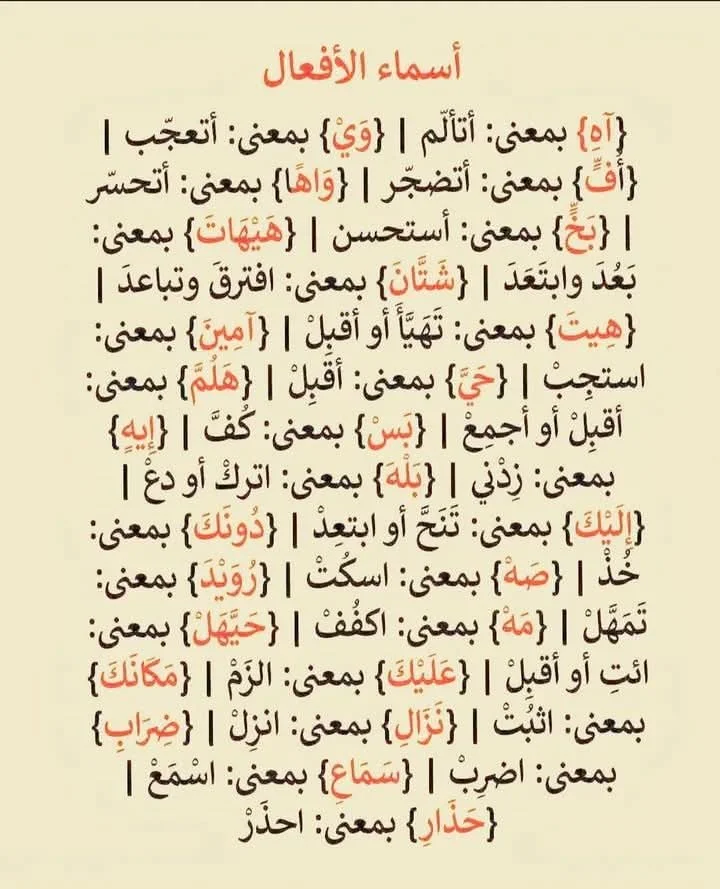 أسماء الأفعال
{آهِ} بمعنى: أتألّم | {وَيْ} بمعنى: أتعجّب |
{أُفٍّ} بمعنى: أتضجّر | {وَاهًا} بمعنى: أتحسّر
| {بَخٍّ} بمعنى: أستحسن | {هَيْهَاتَ} بمعنى:
بَعُدَ وابتَعَدَ | {شَتَّانَ} بمعنى: افترقَ وتباعدَ |
{هِيتَ} بمعنى: تَهَيَّأَ أو أقبِلْ | {آمِينَ} بمعنى:
استجِبْ | {حَيَّ} بمعنى: أقبِلْ | {هَلُمَّ} بمعنى:
أقبِلْ أو أجمِعْ | {بَسْ} بمعنى: كُفَّ | {إِيهٍ}
بمعنى: زِدْني | {بَلْهَ} بمعنى: اتركْ أو دعْ |
{إِلَيْكَ} بمعنى: تَنَحَّ أو ابتعِدْ | {دُونَكَ} بمعنى:
خُذْ | {صَهْ} بمعنى: اسكُتْ | {رُوَيْدَ} بمعنى:
تَمَهَّلْ | {مَهْ} بمعنى: اكفُفْ | {حَيَّهَلْ} بمعنى:
ائتِ أو أقبِلْ | {عَلَيْكَ} بمعنى: الزَمْ | {مَكَانَكَ}
بمعنى: اثبُتْ | {نَزَالِ} بمعنى: انزِلْ | {ضِرَابِ}
بمعنى: اضرِبْ | {سَمَاعِ} بمعنى: اسْمَعْ |
{حَذَارِ} بمعنى: احذَرْ